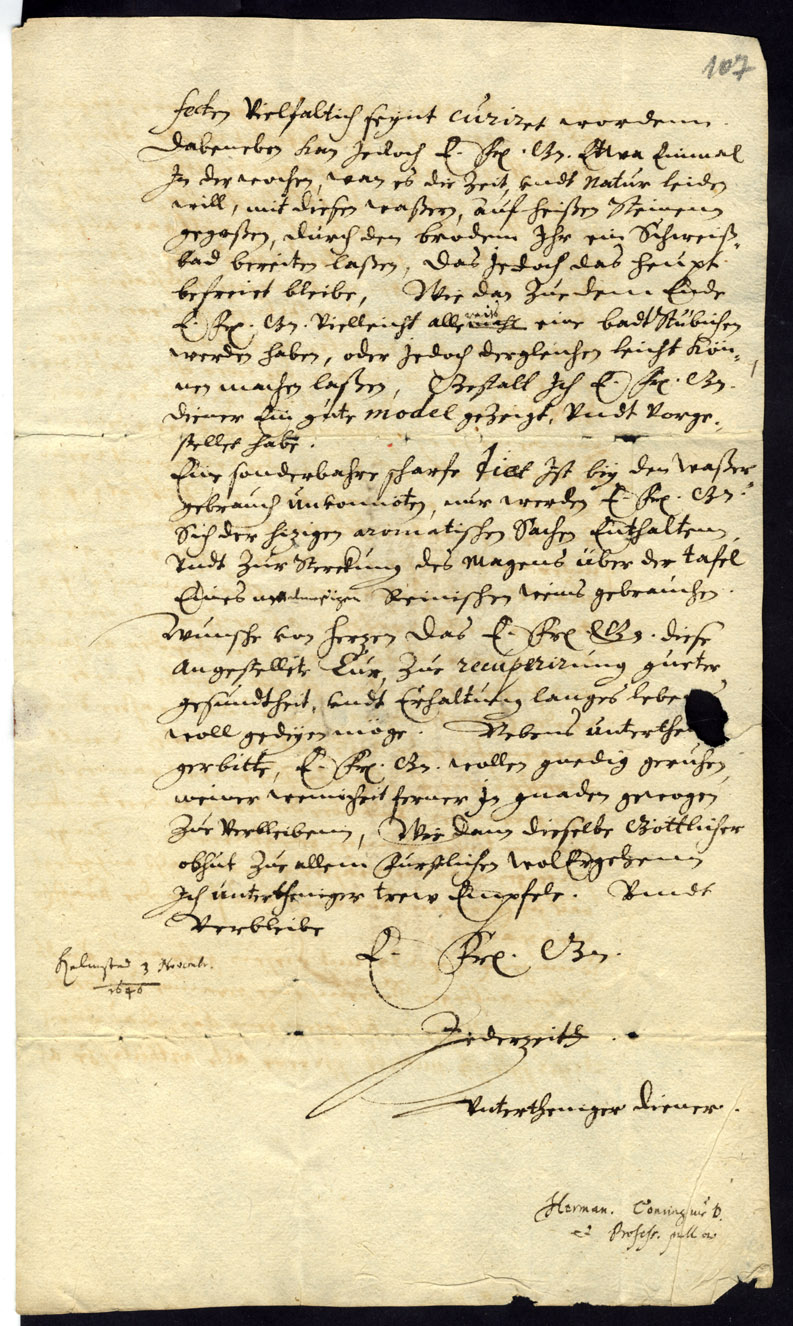 107
fecten vielfaltich seyint curiret wordenn.
Dabeneben kan jedoch E. Frl. Gn. Etwa Einmal
In der wochen, wan es die Zeit, undt Natur leiden
will, mit diesen waßern, auf heißen Steinenn
gegoßen, durch den brodem Ihr ein Schweiß-
bad bereiten laßen, Das jedoch das heupt
befreiet bleibe, Wie dan Zue dem Ende
E. Frl. Gn. Vielleicht alle eine badt Stübichen
werden haben, oder jedoch dergleichen leicht kön-
nen machen laßen, Gestalt Ich E. Frl. Gn.
diener Ein gute model gezeigt, Undt vorge-
stellet habe.
Eine sonderbahre scharfe Diet Ist bey den waßer
gebrauch unvonnöten, nur werden E. Frl. Gn.
Sich der hizigen aromatischen Sachen Enthaltenn,
Undt Zur Sterckung des Magens über der tafel
Eines Reinischen weins gebrauchen.
Wunsche von herzen Das E. Frl. Gn. diese
Angestellete Cur, Zue recuperirung gueter
gesundtheit, undt Erhaltung langes lebe
woll gedeyen möge. Nebens underthe
ger bitte, E. Frl. Gn. wollen gnedig geruhen
meiner wenigheit ferner In gnaden gewogen
Zue verbleibenn, Wie dann dieselbe Göttlicher
obhut Zue allem Furstlichen wolErgehenn
Ich untertheniger trew Empfele. Unndt
Verbleibe
E. Frl. Gn.
Helmstad 3 Novemb.
1646
Jederzeith
Untertheniger diener.
Herman. Conringius D.
et Profess.